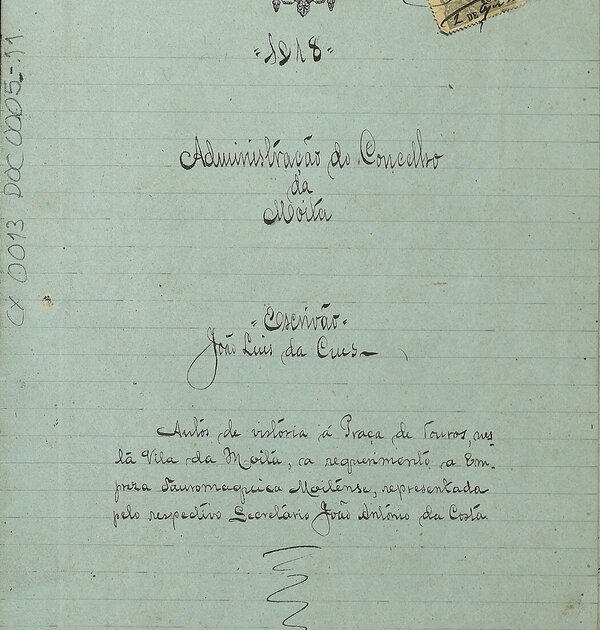 =1918=
Administração do Concelho
da
Moita
=Escrivão=
João Luis da Cruz
Autos de vistória á Praça de Touros, nes-
tá Vila da Moita, a requerimento a Em-
preza Tauromaquica Moitense, representada
pelo respectivo Secretário João António da Costa
CX 0013 DOC 0005-11